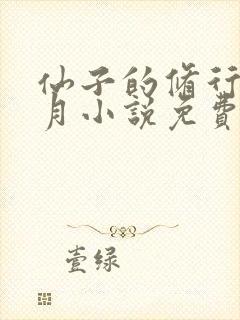 仙子的脩行
月小說免費
壹绿